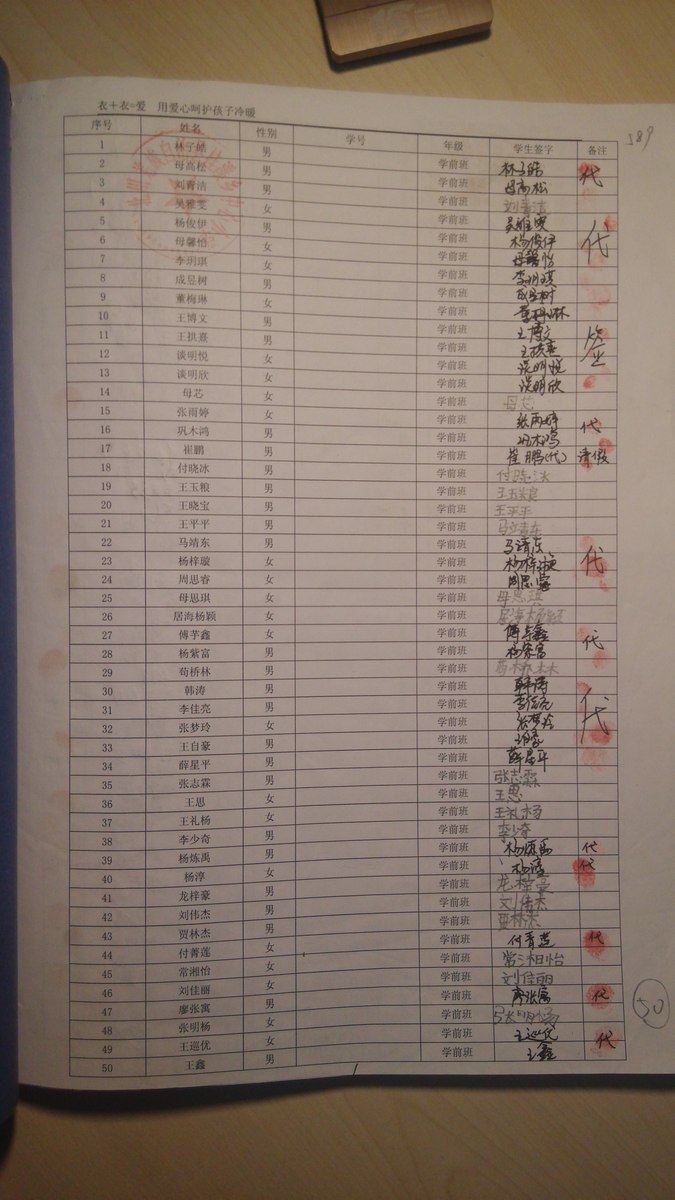 衣+衣=爱 用爱心呵护孩子冷暖
589
序号 姓名 性别 学号 年级 学生签字 备注
1 林子皓 男 学前班 林子皓 代
2 母高松 男 学前班 母高松
3 刘青洁 男 学前班 刘青洁
4 吴雅雯 女 学前班 吴雅雯
5 杨俊伊 男 学前班 杨俊伊 代
6 母馨怡 女 学前班 母馨怡
7 李玥琪 女 学前班 李玥琪
8 成昱树 男 学前班 成昱树
9 董梅琳 女 学前班 董梅琳
10 王博文 男 学前班 王博文
11 王拱熹 男 学前班 王拱熹 签
12 谈明悦 女 学前班 谈明悦
13 谈明欣 女 学前班 谈明欣
14 母芯 女 学前班 母芯
15 张雨婷 女 学前班 张雨婷 代
16 巩木鸿 男 学前班 巩木鸿
17 崔鹏 男 学前班 崔鹏(代) 请假
18 付晓冰 男 学前班 付晓冰
19 王玉粮 男 学前班 王玉粮
20 王晓宝 男 学前班 王平平
21 王平平 男 学前班 马立青车
22 马靖东 男 学前班 马靖东
23 杨梓璇 女 学前班 杨梓璇 代
24 周思睿 女 学前班 周思睿
25 母思琪 女 学前班 母思琪
26 居海杨颖 女 学前班 居海杨颖
27 傅芊鑫 女 学前班 傅芊鑫 代
28 杨紫富 男 学前班 杨紫富
29 苟桥林 男 学前班
30 韩涛 男 学前班 韩涛
31 李佳亮 男 学前班 李佳亮 代
32 张梦玲 女 学前班 张梦玲
33 王自豪 男 学前班 王自豪
34 薛星平 男 学前班 薛星平
35 张志霖 男 学前班 张志霖
36 王思 女 学前班 王思
37 王礼杨 女 学前班 王礼杨
38 李少奇 男 学前班 李少奇
39 杨炼禹 男 学前班 杨炼禹 代
40 杨淳 女 学前班 杨淳 代
41 龙梓豪 男 学前班 龙梓豪
42 刘伟杰 男 学前班 刘伟杰
43 贾林杰 男 学前班 贾林杰
44 付菁莲 女 学前班 付菁莲 代
45 常湘怡 女 学前班 常湘怡
46 刘佳丽 女 学前班 刘佳丽
47 廖张寓 男 学前班 廖张寓 代
48 张明杨 女 学前班 张明杨
49 王巡优 女 学前班 王巡优 代
50 王鑫 男 学前班 王鑫
50